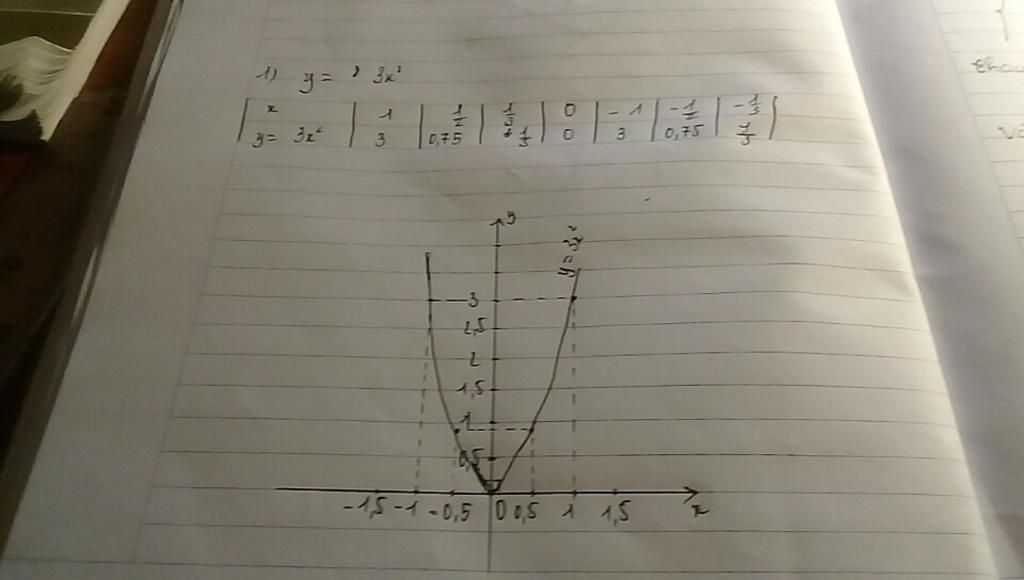 1) y = 3x²
x | 1 | 1/2 | 1/3 | 0 | -1 | -1/2 | -1/3
y = 3x² | 3 | 0,75 | 1/3 | 0 | 3 | 0,75 | 1/3
y
y = 3x²
3
2,5
2
1,5
1
0,5
-1,5 -1 -0,5 0 0,5 1 1,5 x